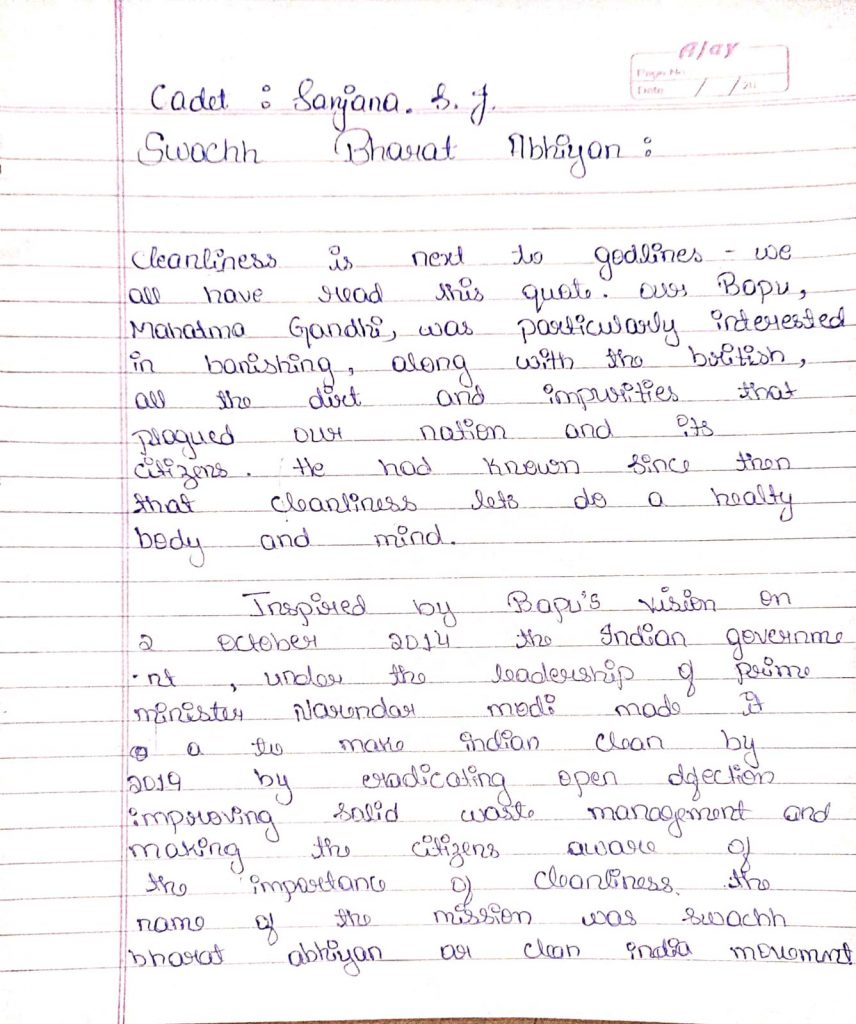 Ajay
Page No:
Date / /20
Cadet : Sanjana. S. J.
Swachh Bharat Abhiyan :
Cleanliness is next to godlines - we
all have read this quote. our Bapu,
Mahatma Gandhi, was particularly interested
in banishing, along with the british,
all the dirt and impurities that
plagued our nation and its
citizens. He had known since then
that cleanliness lets do a healty
body and mind.
Inspired by Bapu's vision on
2 October 2014 the Indian governme
nt, under the leadership of prime
minister Narendar modi made it
a to make indian clean by
2019 by eradicating open dfection
improving solid waste management and
making the citizens aware of
the importance of cleanliness. the
name of the mission was swachh
bharat abhiyan or clean india movemnt